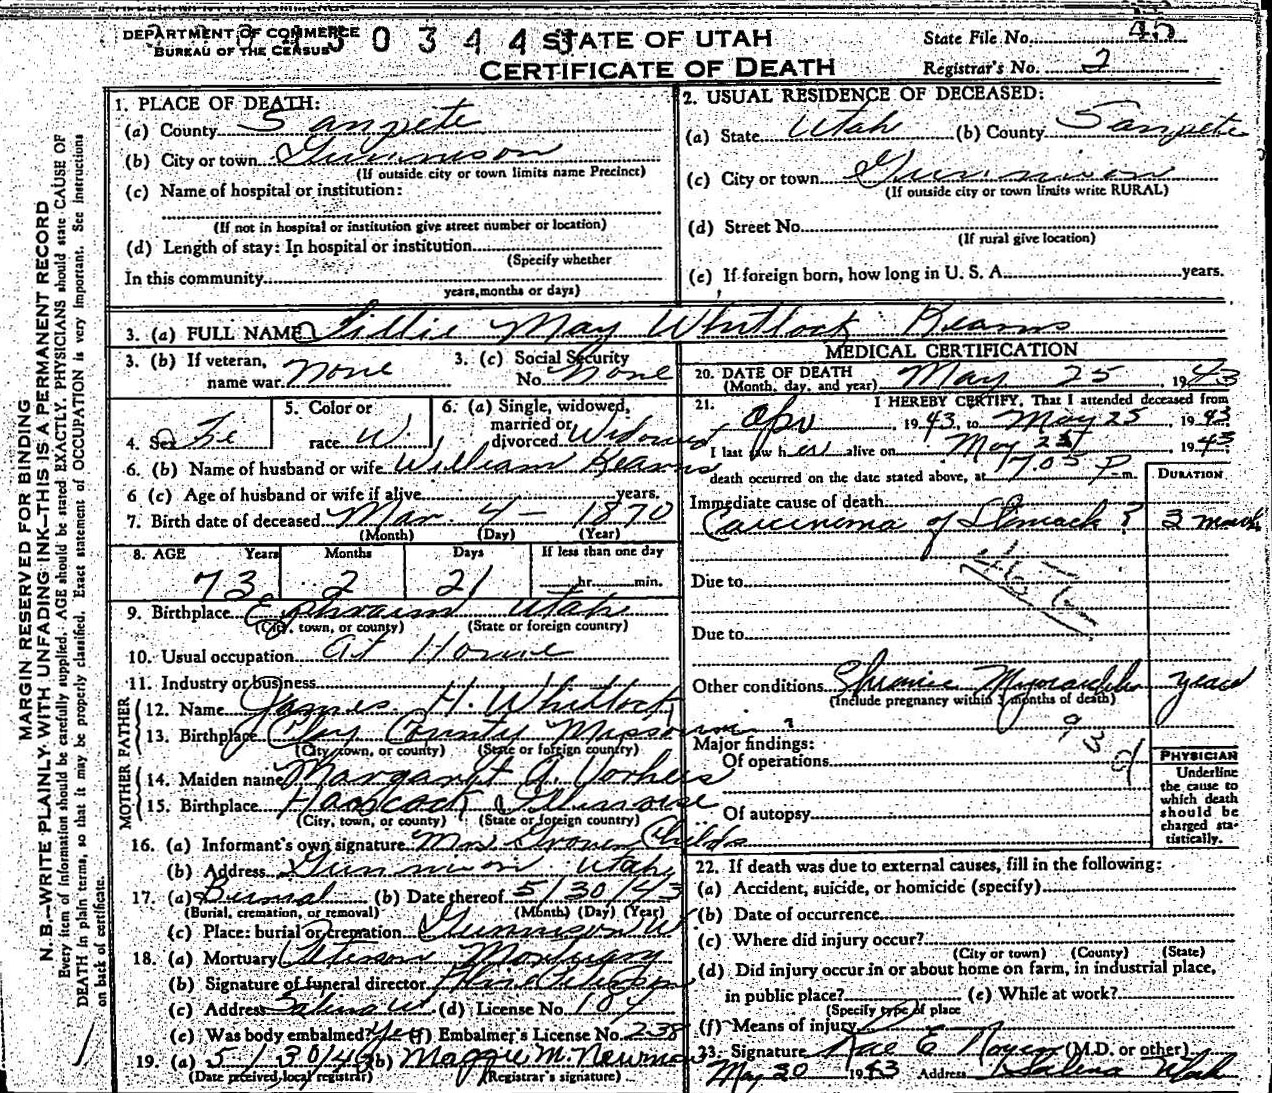 DEPARTMENT OF COMMERCE
BUREAU OF THE CENSUS
30344
STATE OF UTAH
CERTIFICATE OF DEATH
State File No. 45
Registrar's No. 2
MARGIN RESERVED FOR BINDING
N. B.—WRITE PLAINLY WITH UNFADING INK—THIS IS A PERMANENT RECORD
Every item of information should be carefully supplied. AGE should be stated EXACTLY. PHYSICIANS should state CAUSE OF
DEATH in plain terms, so that it may be properly classified. Exact statement of OCCUPATION is very important. See instructions
on back of certificate.
1. PLACE OF DEATH:
(a) County Sanpete
(b) City or town Gunnison
(If outside city or town limits name Precinct)
(c) Name of hospital or institution:
(If not in hospital or institution give street number or location)
(d) Length of stay: In hospital or institution
(Specify whether
In this community
years, months or days)
2. USUAL RESIDENCE OF DECEASED:
(a) State Utah (b) County Sanpete
(c) City or town Gunnison
(If outside city or town limits write RURAL)
(d) Street No.
(If rural give location)
(e) If foreign born, how long in U. S. A. years.
3. (a) FULL NAME Lillie May Whitlock Kearns
3. (b) If veteran, name war none
3. (c) Social Security No. None
4. Sex Fe
5. Color or race W
6. (a) Single, widowed, married or divorced Widowed
6. (b) Name of husband or wife William Kearns
6 (c) Age of husband or wife if alive years.
7. Birth date of deceased Mar. 4 - 1870
(Month) (Day) (Year)
8. AGE Years Months Days If less than one day
73 2 21 hr. min.
9. Birthplace Ephraim Utah
(City, town, or county) (State or foreign country)
10. Usual occupation At Home
11. Industry or business
FATHER
12. Name James H. Whitlock
13. Birthplace Clay County Missouri
(City, town, or county) (State or foreign country)
MOTHER
14. Maiden name Margaret A. Vorhees
15. Birthplace Hancock Illinois
(City, town, or county) (State or foreign country)
16. (a) Informant's own signature Mrs Grover Childs
(b) Address Gunnison Utah
17. (a) Burial (b) Date thereof 5/30/43
(Burial, cremation, or removal) (Month) (Day) (Year)
(c) Place: burial or cremation Gunnison U
18. (a) Mortuary
(b) Signature of funeral director
(c) Address Salina U. (d) License No. 104
(e) Was body embalmed? Yes (f) Embalmer's License No. 238
19. (a) 5/30/43 (b) Maggie M. Newman
(Date received local registrar) (Registrar's signature)
MEDICAL CERTIFICATION
20. DATE OF DEATH
(Month, day, and year) May 25, 1943
21. I HEREBY CERTIFY, That I attended deceased from
Apr, 1943, to May 25 1943
I last saw her alive on May 25, 1943
death occurred on the date stated above, at P m.
DURATION
Immediate cause of death
Carcinoma of Stomach ? 3 months
Due to
Due to
Other conditions Chronic Myocarditis years
(Include pregnancy within 3 months of death)
Major findings:
Of operations
Of autopsy
PHYSICIAN
Underline
the cause to
which death
should be
charged sta-
tistically.
22. If death was due to external causes, fill in the following:
(a) Accident, suicide, or homicide (specify)
(b) Date of occurrence
(c) Where did injury occur?
(City or town) (County) (State)
(d) Did injury occur in or about home on farm, in industrial place,
in public place? (e) While at work?
(Specify type of place
(f) Means of injury
23. Signature Rae E Noyes (M.D. or other)
May 30 1943 Address Salina Utah